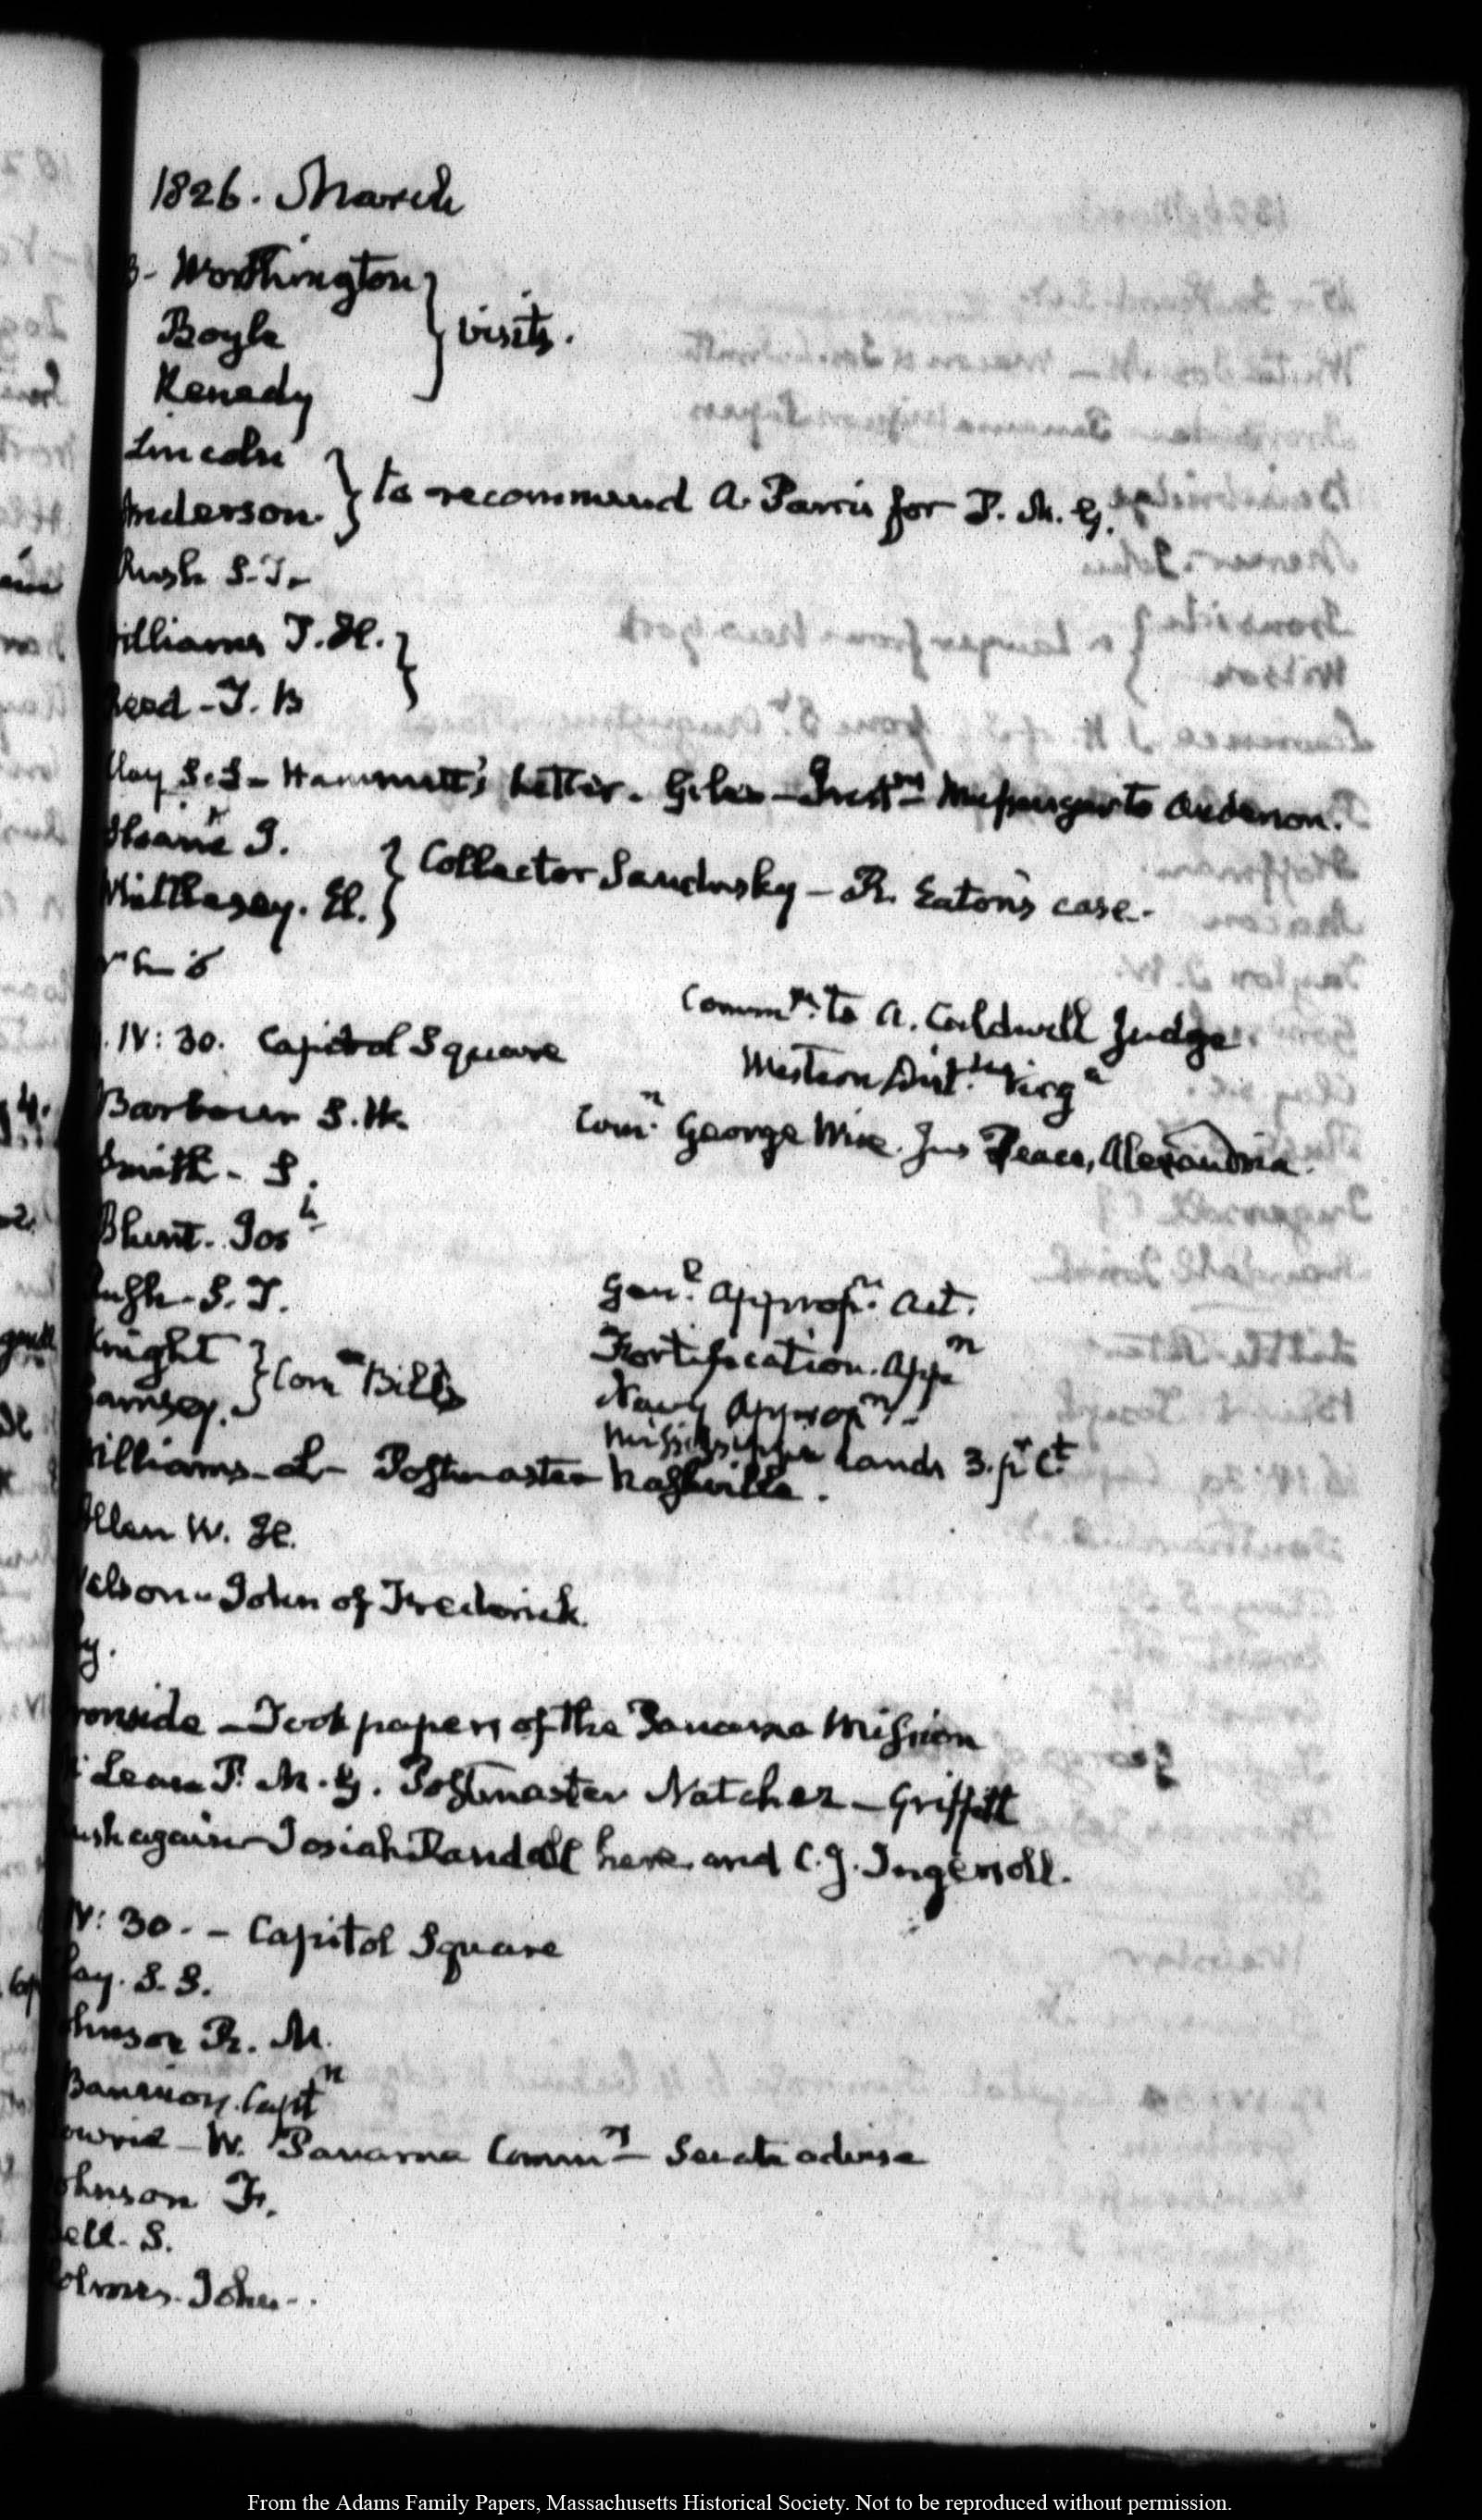 1826. March
3- Worthington
Boyle } visits.
Kenedy
Lincoln
Anderson. } to recommend A. Parris for P. M. G.
Rush S. T.
illiams T. H. }
Reed - T. B
Clay S. S - Hammett's Letter. Giles - Instns Messenger to Anderson.
Sloane J.
Whittlesey. El. } Collector Sandusky - R. Eaton's case.
IV: 30. Capitol Square
Commn. to A. Caldwell Judge
Western Dist. Virga
Barbour S. W.
Comn. George Wise. Jus Peace, Alexandria.
Smith - S.
Blunt. Josh
Rush - S. T.
Genl. Appropn. Act.
Knight
amsey. } Com Bills
Fortification. Appn
Navy Appropn -
Mississippi Lands 3. pr Ct
illiams - L - Postmaster Nashville.
Allen W. H.
elson - John of Frederick.
y.
ronside - Took papers of the Panama Mission
Lean P. M. G. Postmaster Natchez - Griffith
ush again - Josiah Randall here and C. J. Ingersoll.
IV: 30. - Capitol Square
lay. S. S.
ohnson R. M.
Captn
owrie - W. Panama Commn - Senate advise
ohnson F.
ell. S.
olmes. John - .
From the Adams Family Papers, Massachusetts Historical Society. Not to be reproduced without permission.